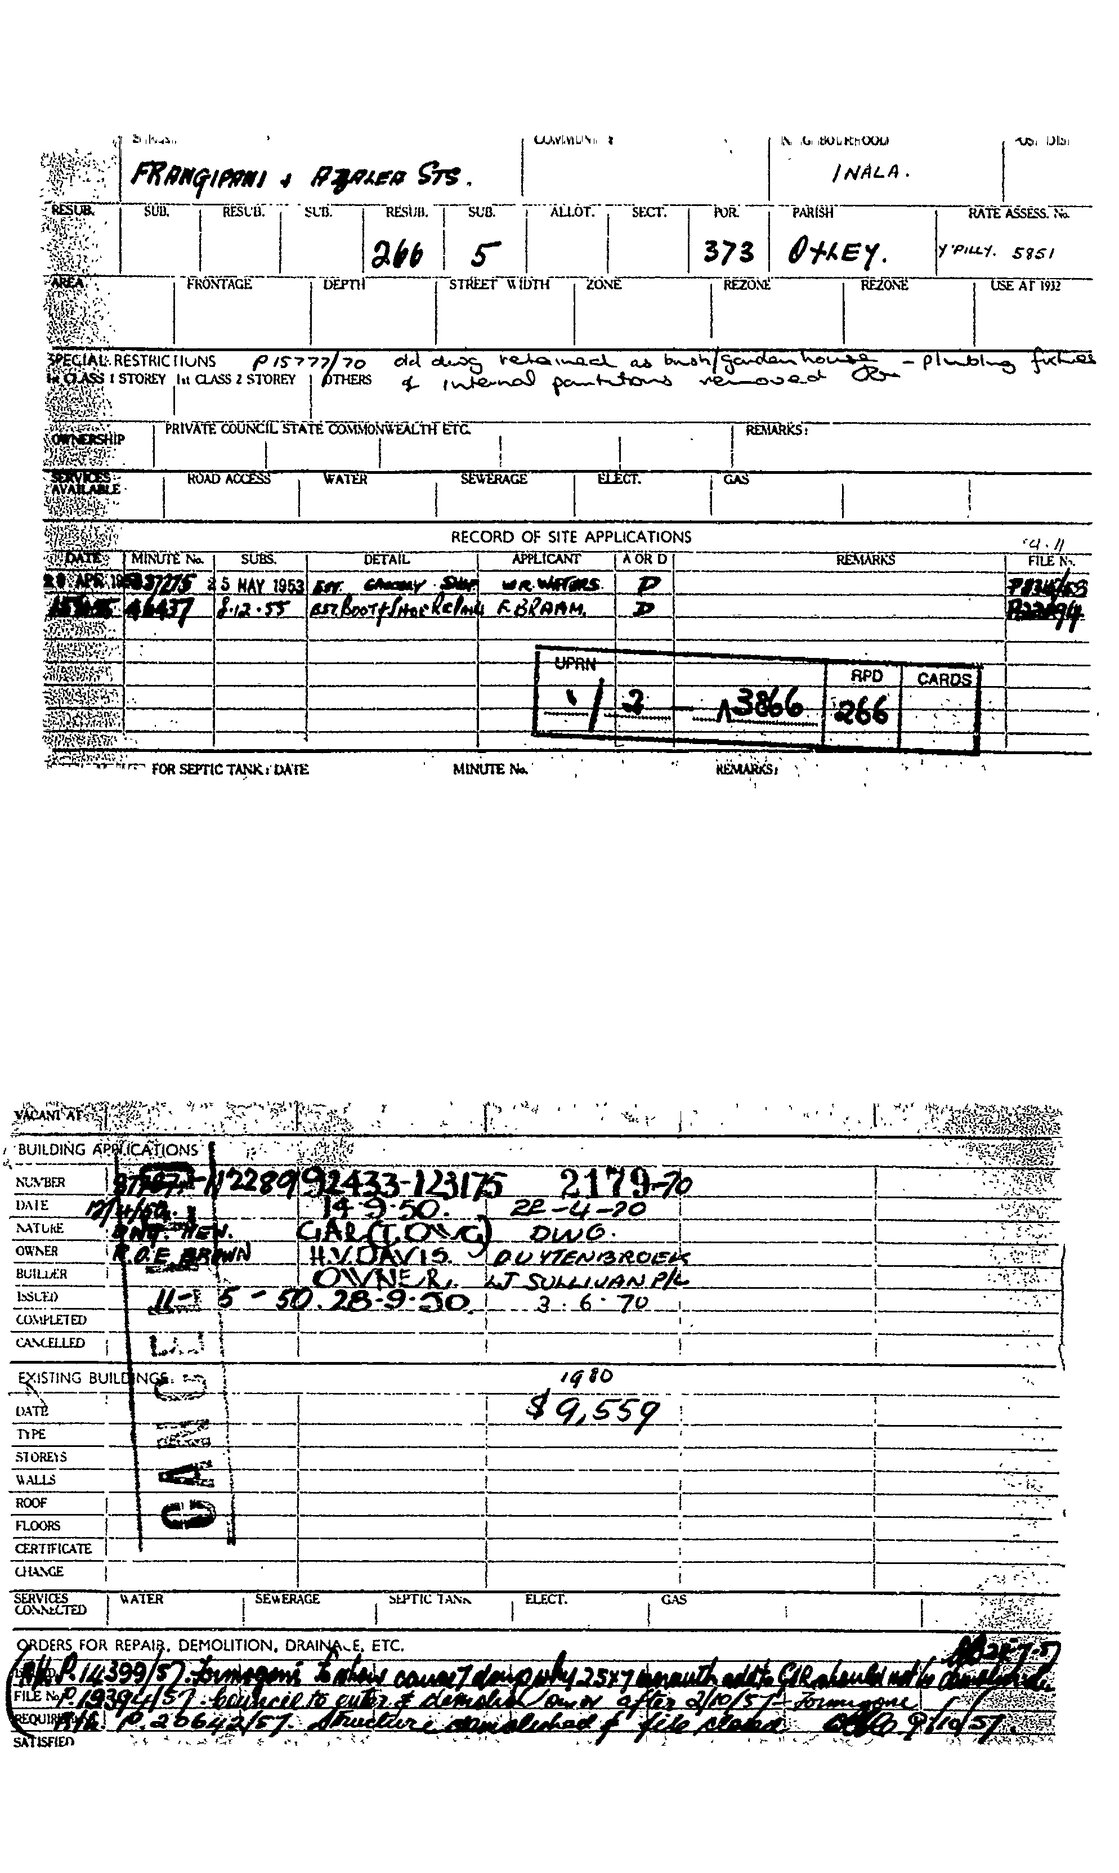 FRANGIPANI & AZALEA STS.
INALA.
RESUB. SUB. RESUB. SUB. RESUB. SUB. ALLOT. SECT. POR. PARISH RATE ASSESS. No.
266 5 373 OXLEY. Y'PILLY. 5851
AREA FRONTAGE DEPTH STREET WIDTH ZONE REZONE REZONE USE AT 1932
SPECIAL RESTRICTIONS P15777/70 old dwg retained as bush/gardenhouse - plumbing fixtures
1st CLASS 1 STOREY 1st CLASS 2 STOREY OTHERS & internal partitions removed
OWNERSHIP PRIVATE COUNCIL STATE COMMONWEALTH ETC. REMARKS:
SERVICES AVAILABLE ROAD ACCESS WATER SEWERAGE ELECT. GAS
RECORD OF SITE APPLICATIONS
DATE MINUTE No. SUBS. DETAIL APPLICANT A OR D REMARKS FILE No.
APR 37275 25 MAY 1953 EST. GROCERY SHOP W.R. WATERS. D
46437 8.12.55 EST. BOOT & SHOE REPAIRS F. BRAAM. D
UPRN RPD CARDS
1/ 2 - 3866 266
FOR SEPTIC TANK: DATE MINUTE No. REMARKS:
VACANT AT
BUILDING APPLICATIONS
NUMBER 112289 92433-123175 2179-70
DATE 12/4/50. 14-9-50. 22-4-70
NATURE DWG. NEW. GAR (TO DWG) DWG.
OWNER R.O.E BROWN H.V. DAVIS. DUYTENBROEK
BUILDER OWNER. SULLIVAN P/L
ISSUED 11-5-50. 28-9-50. 3.6.70
COMPLETED
CANCELLED
CANCELLED
EXISTING BUILDINGS: 1980
DATE $9,559
TYPE
STOREYS
WALLS
ROOF
FLOORS
CERTIFICATE
CHANGE
SERVICES CONNECTED WATER SEWERAGE SEPTIC TANK ELECT. GAS
ORDERS FOR REPAIR, DEMOLITION, DRAINAGE, ETC.
P.14399/57. to show cause 7 days why 25x7 addn to GAR should not be demolished
FILE No. P.19394/57. Council to enter & demolish after 2/10/57
REQUIRE P.20642/57. Structure demolished & file closed 9/10/57.
SATISFIED